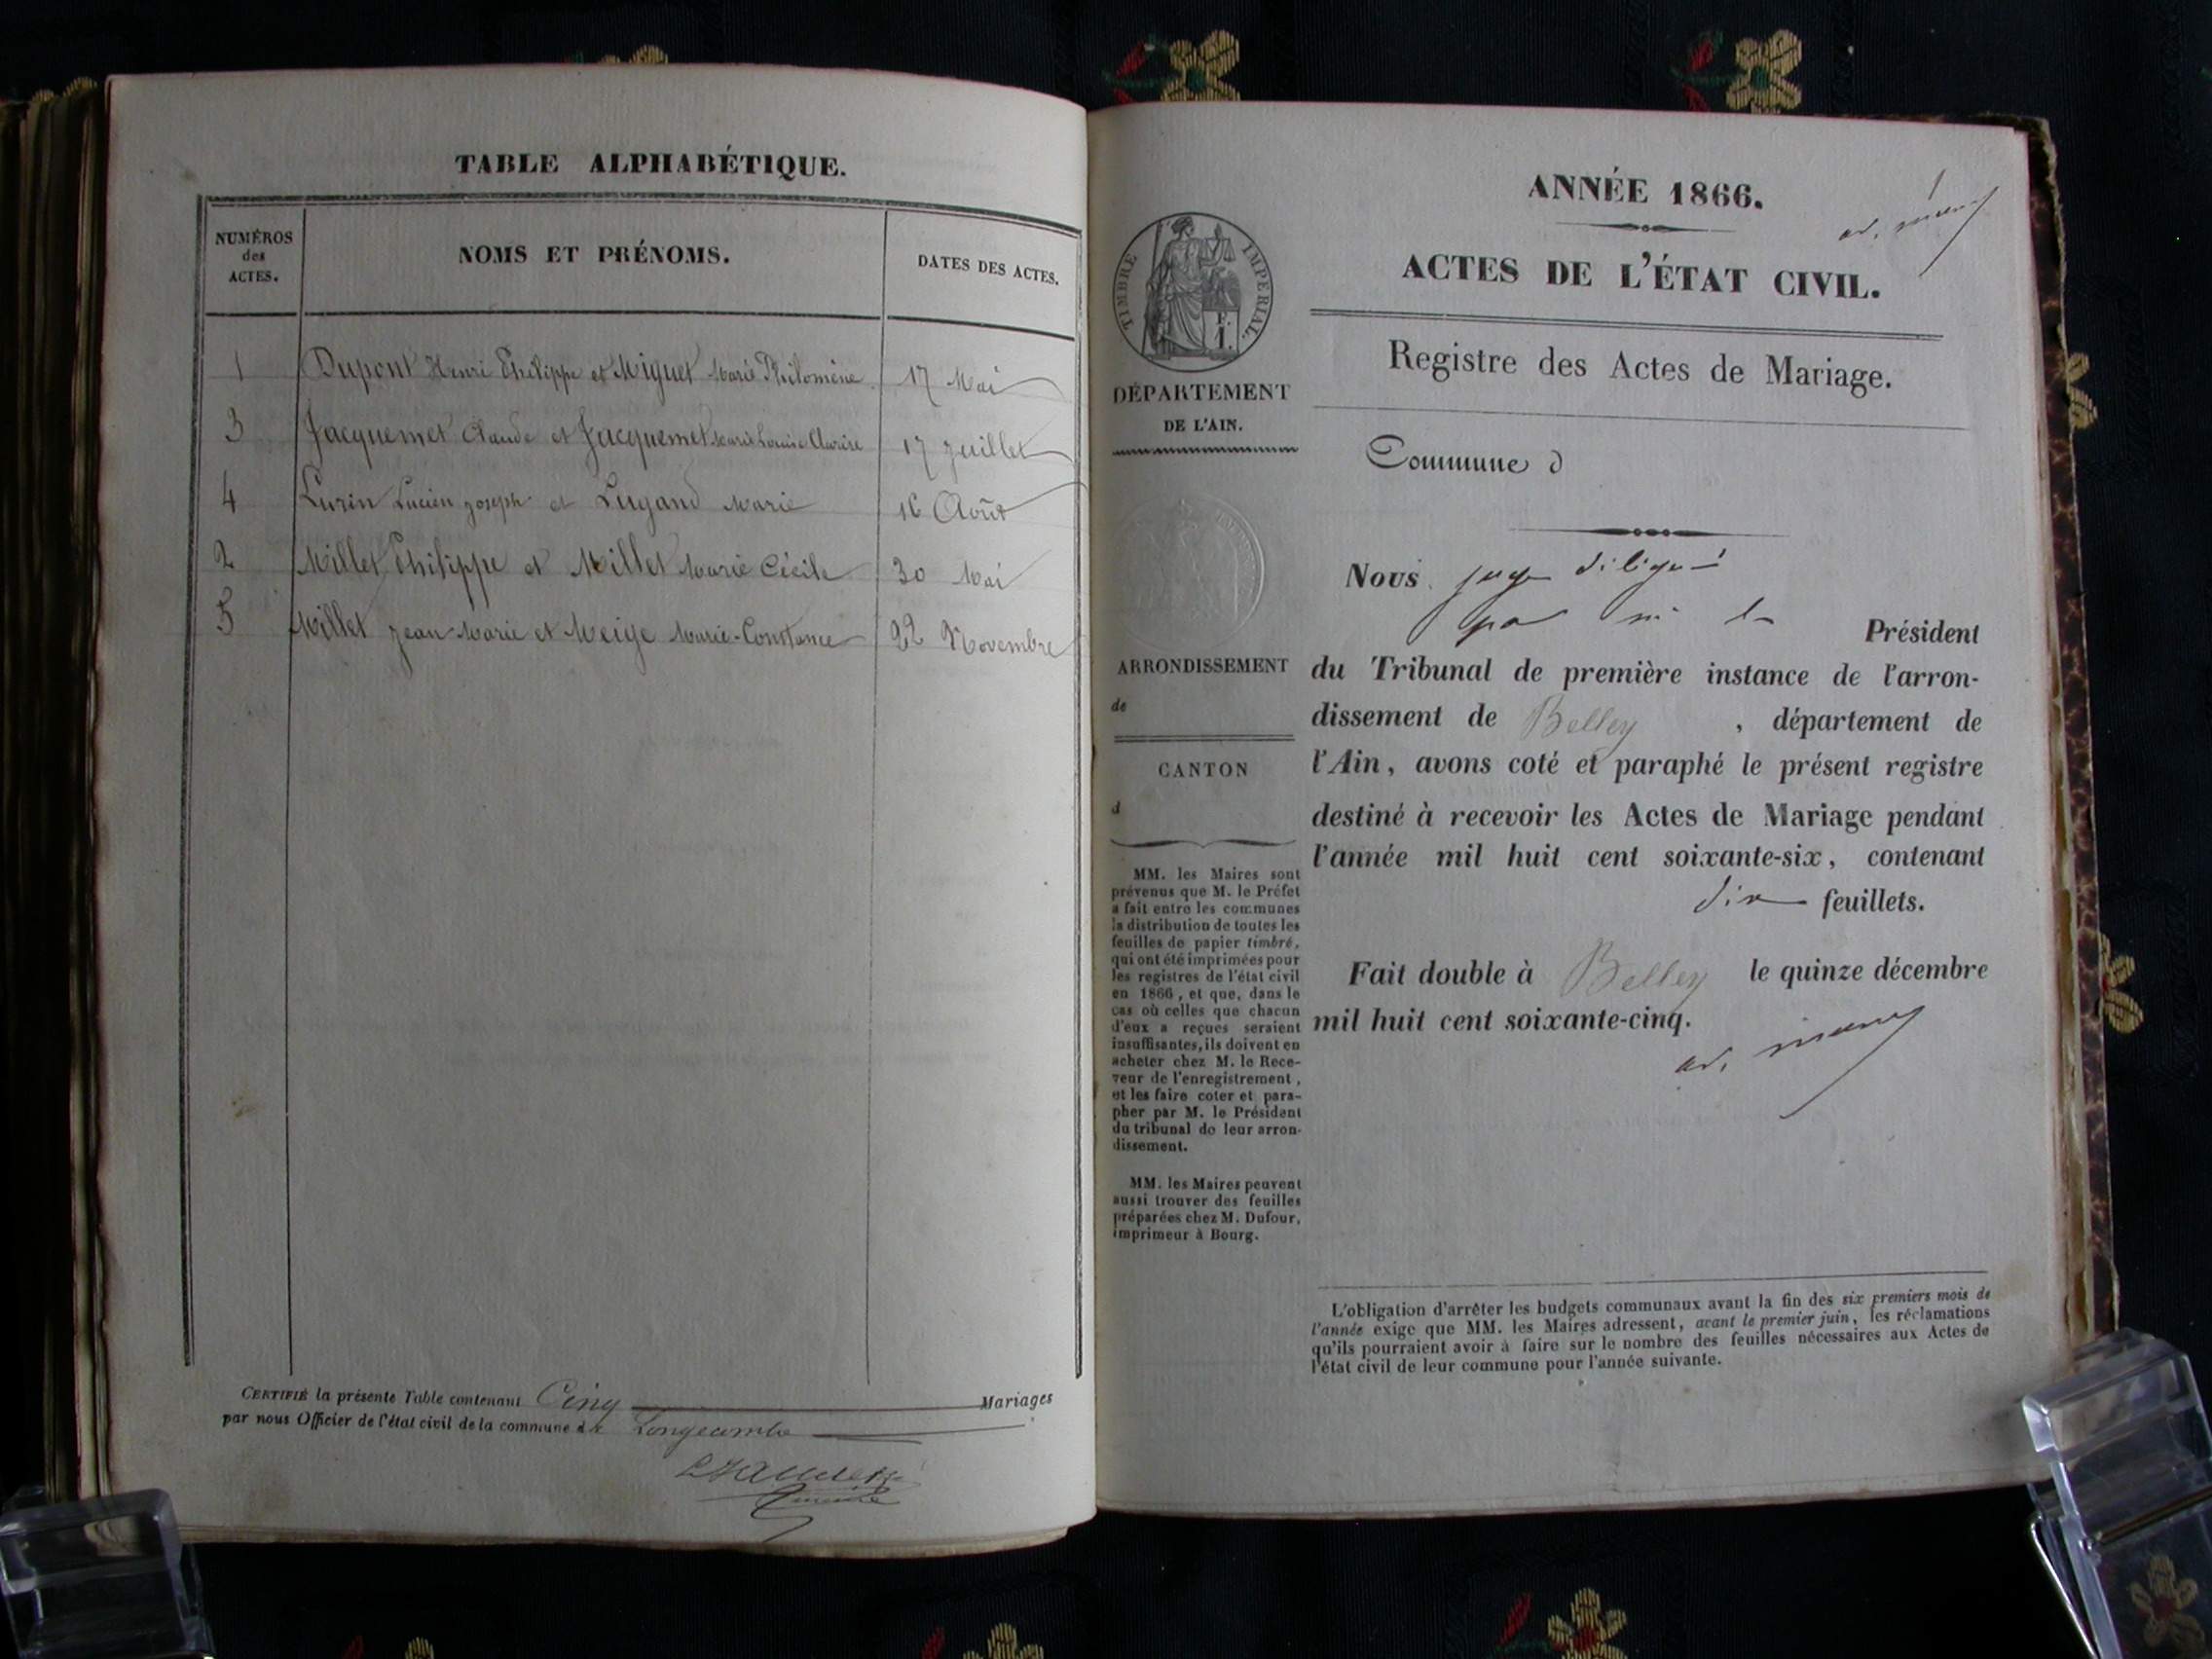 TABLE ALPHABÉTIQUE.
NUMÉROS
des
ACTES.
NOMS ET PRÉNOMS.
DATES DES ACTES.
1 Dupont Henri Philippe et Miguet Marie Philomène 17 Mai
3 Jacquemet Claude et Jacquemet Marie Louise Clarisse 17 Juillet
4 Luzin Lucien Joseph et Lugand Marie 16 Août
2 Millet Philippe et Millet Marie Cécile 30 Mai
5 Millet Jean Marie et Meige Marie-Constance 22 Novembre
CERTIFIÉ la présente Table contenant Cinq Mariages
par nous Officier de l'état civil de la commune de Longecombe
ANNÉE 1866.
ACTES DE L'ÉTAT CIVIL.
Registre des Actes de Mariage.
TIMBRE IMPÉRIAL.
F.
1.
DÉPARTEMENT
DE L'AIN.
Commune d
Nous juge délégué
par m le Président
du Tribunal de première instance de l'arron-
dissement de Belley, département de
l'Ain, avons coté et paraphé le présent registre
destiné à recevoir les Actes de Mariage pendant
l'année mil huit cent soixante-six, contenant
dix feuillets.
Fait double à Belley le quinze décembre
mil huit cent soixante-cinq.
ARRONDISSEMENT
de
CANTON
d
MM. les Maires sont
prévenus que M. le Préfet
a fait entre les communes
la distribution de toutes les
feuilles de papier timbré,
qui ont été imprimées pour
les registres de l'état civil
en 1866, et que, dans le
cas où celles que chacun
d'eux a reçues seraient
insuffisantes, ils doivent en
acheter chez M. le Rece-
veur de l'enregistrement,
et les faire coter et para-
pher par M. le Président
du tribunal de leur arron-
dissement.
MM. les Maires peuvent
aussi trouver des feuilles
préparées chez M. Dufour,
imprimeur à Bourg.
L'obligation d'arrêter les budgets communaux avant la fin des six premiers mois de
l'année exige que MM. les Maires adressent, avant le premier juin, les réclamations
qu'ils pourraient avoir à faire sur le nombre des feuilles nécessaires aux Actes de
l'état civil de leur commune pour l'année suivante.